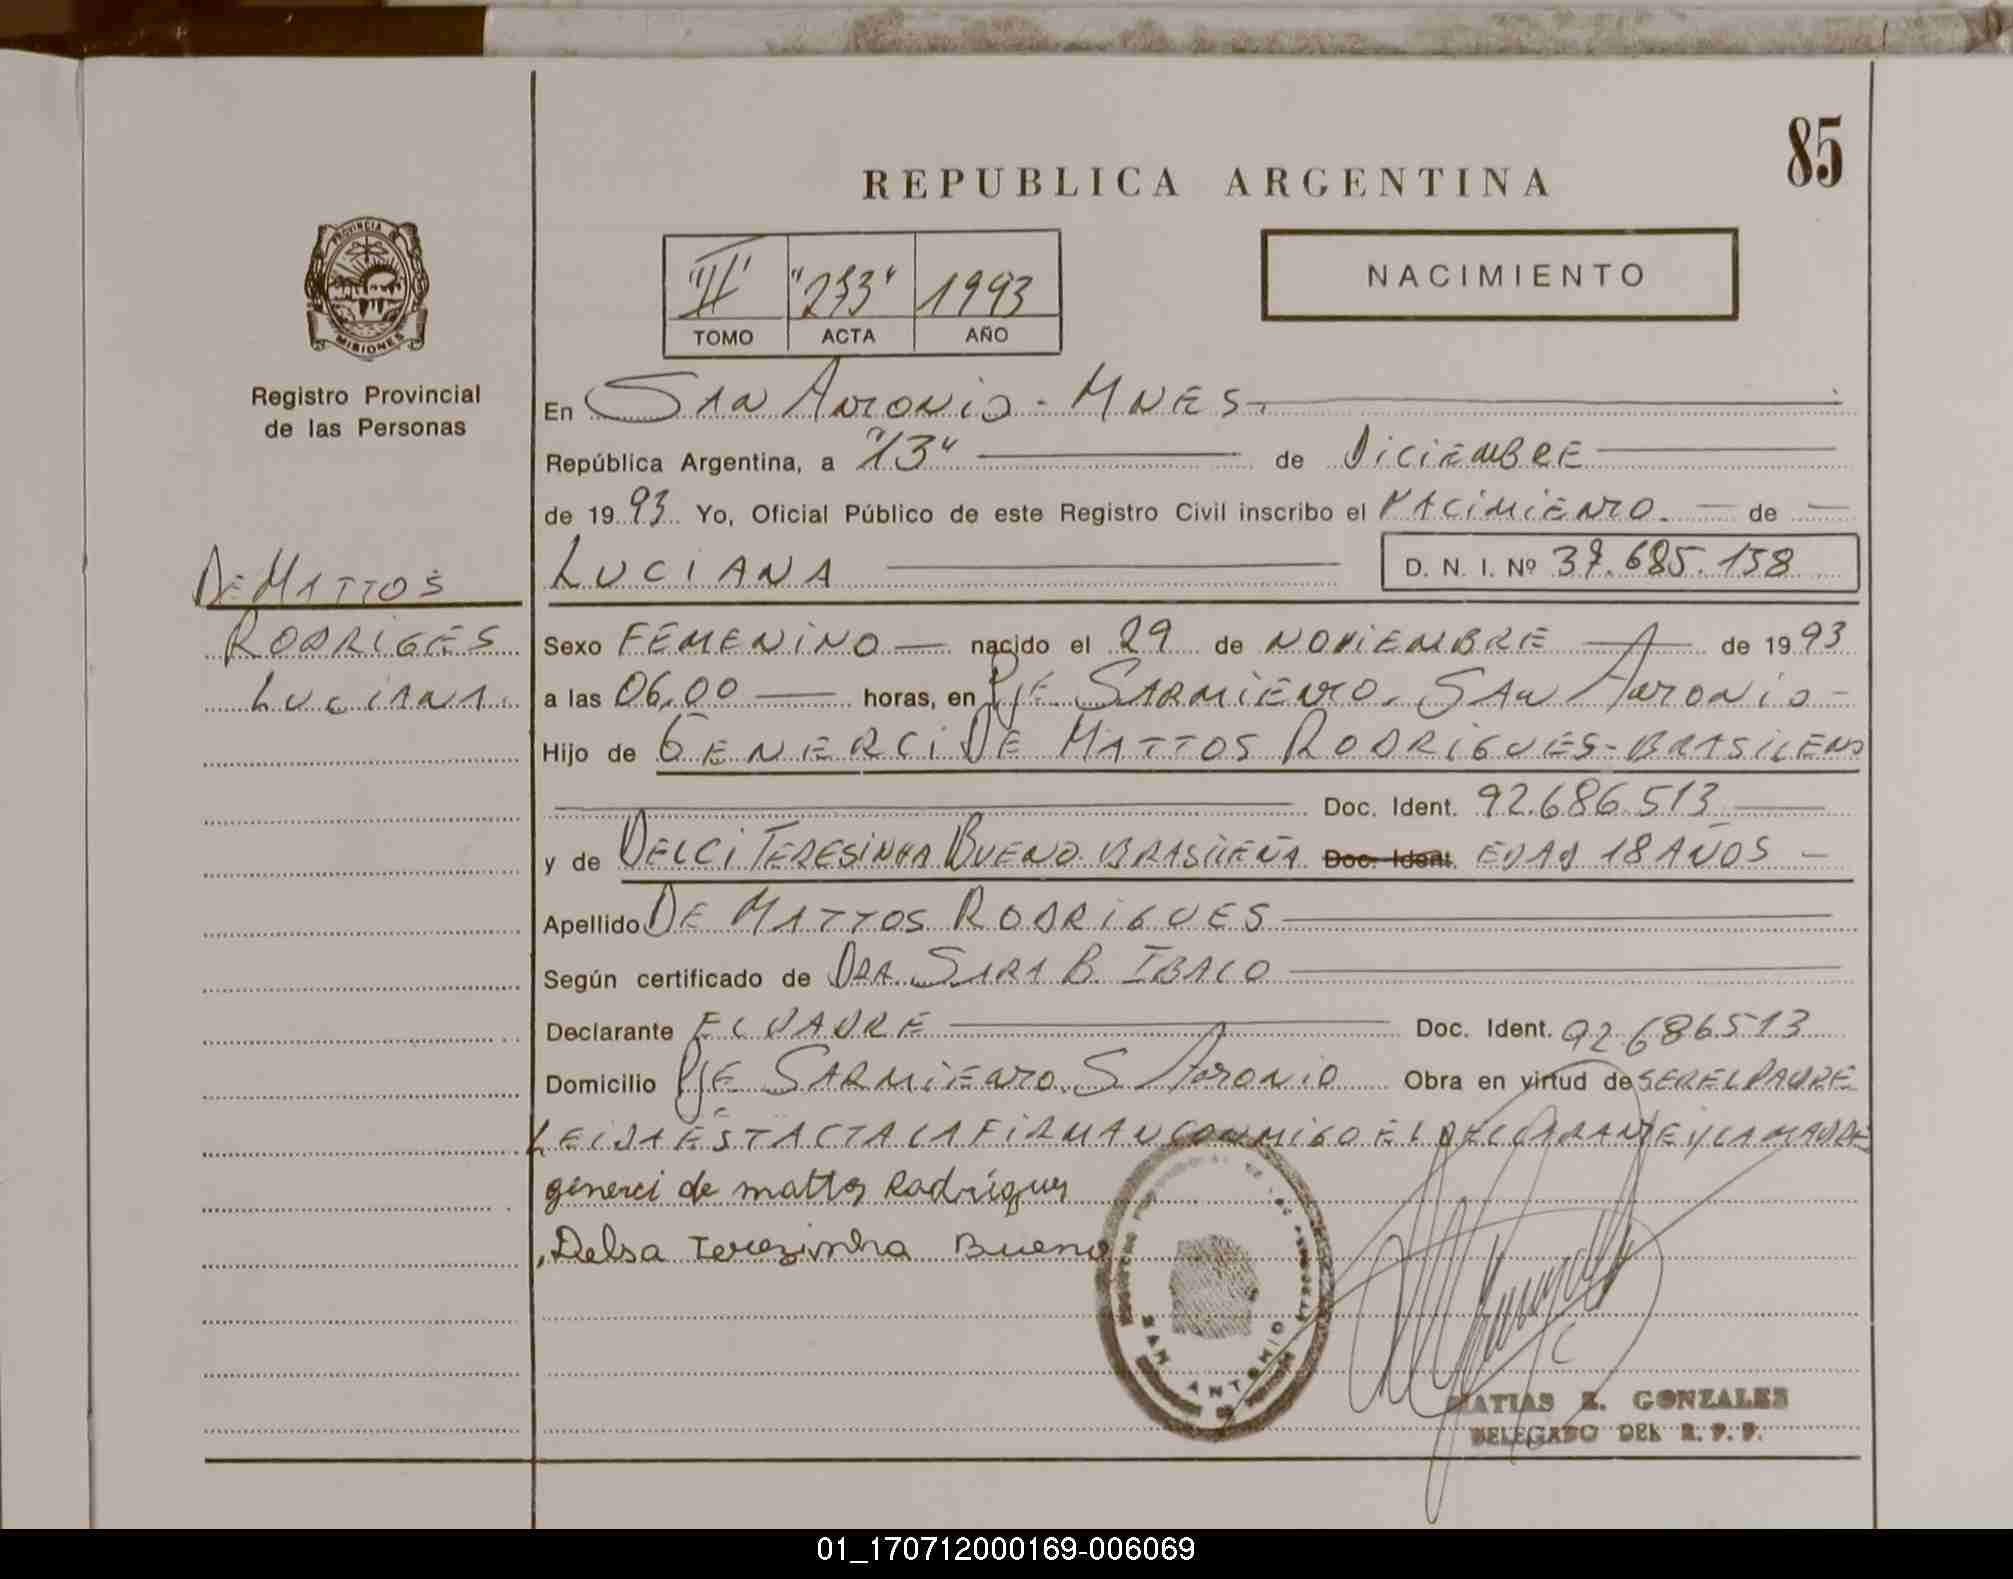 85
REPUBLICA ARGENTINA
PROVINCIA DE
MISIONES
Registro Provincial
de las Personas
"II" "273" 1993
TOMO ACTA AÑO
NACIMIENTO
En SAN ANTONIO - MNES.
República Argentina, a "13" de DICIEMBRE
de 1993 Yo, Oficial Público de este Registro Civil inscribo el NACIMIENTO. de
LUCIANA D. N. I. Nº 37.685.158
DE MATTOS
RODRIGES
LUCIANA.
Sexo FEMENINO nacido el 29 de NOVIEMBRE de 1993
a las 06,00 horas, en PJE SARMIENTO. SAN ANTONIO -
Hijo de GENERCI DE MATTOS RODRIGUES - BRASILENO
Doc. Ident. 92.686.513
y de DELCI TERESINHA BUENO. BRASILEÑA Doc. Ident. EDAD 18 AÑOS -
Apellido DE MATTOS RODRIGUES
Según certificado de DRA. SARA B.
Declarante EL PADRE Doc. Ident. 92686513
Domicilio PJE SARMIENTO. S ANTONIO Obra en virtud de SER EL PADRE
LEIDA ESTA ACTA LA FIRMAN CONMIGO EL DECLARANTE Y LA MADRE
generci de mattos Rodrigues
Delsa Terezinha Bueno
SAN ANTONIO
MATIAS E. GONZALES
DELEGADO DEL R. P. P.
01_170712000169-006069